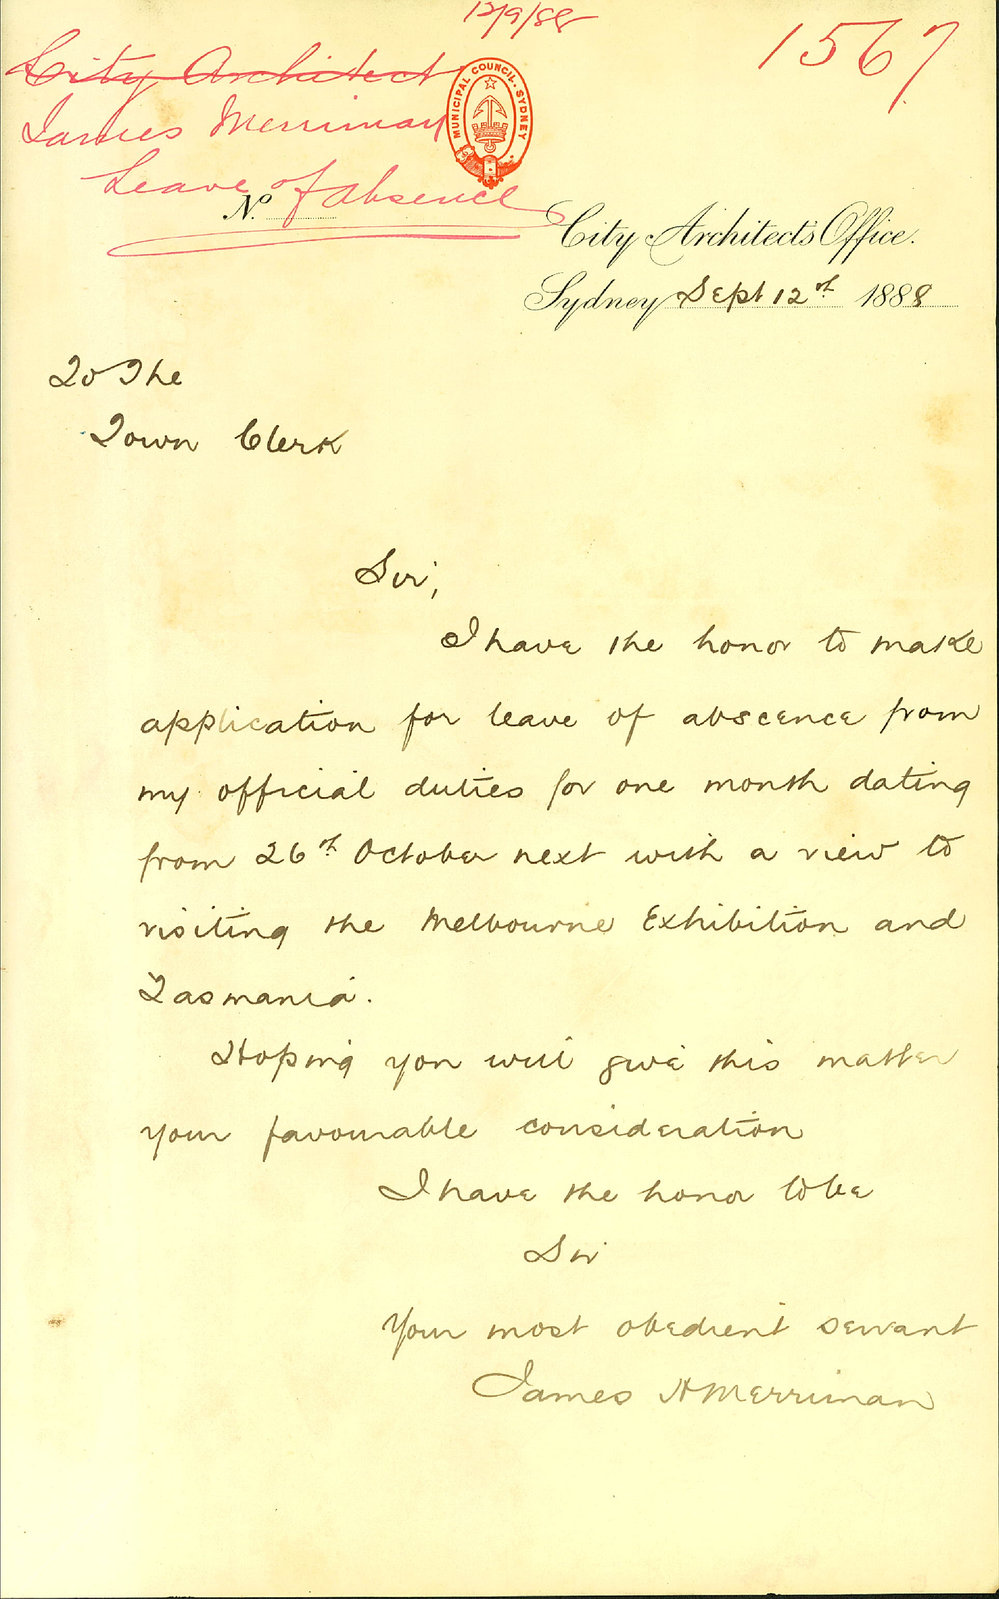 12/9/88
1567
City Architect
James Merriman
Leave of Absence
MUNICIPAL COUNCIL. SYDNEY
No.
City Architect's Office.
Sydney Sept 12th 1888
To The
Town Clerk
Sir,
I have the honor to make
application for leave of abscence from
my official duties for one month dating
from 26th October next with a view to
visiting the Melbourne Exhibition and
Tasmania.
Hoping you will give this matter
your favourable consideration
I have the honor to be
Sir
Your most obedient servant
James A Merriman